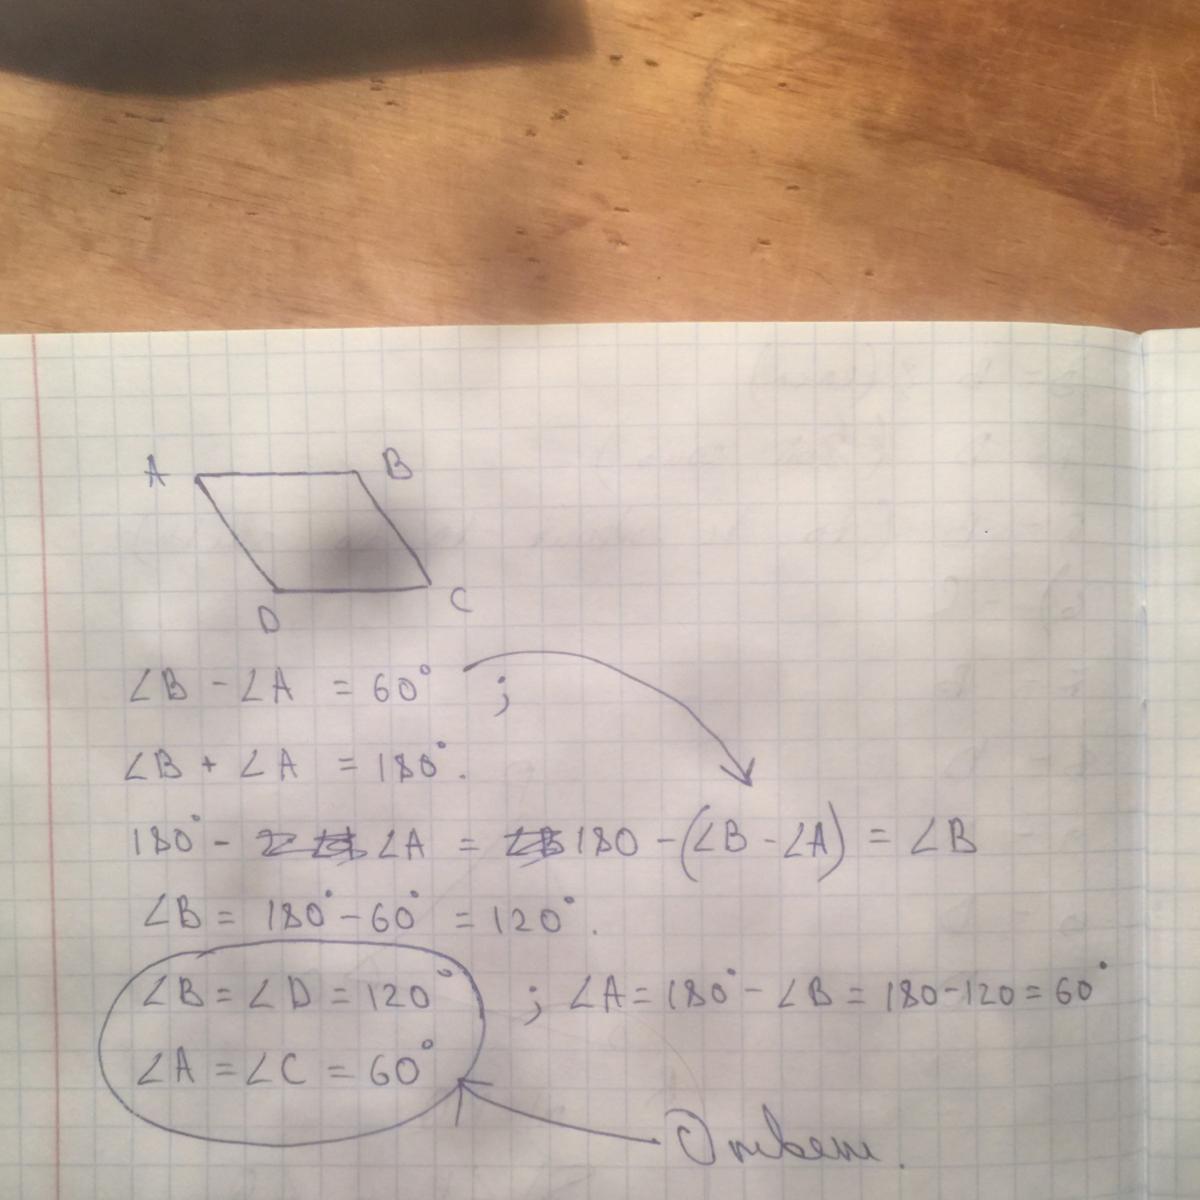 A B
D C
∠B - ∠A = 60° ;
∠B + ∠A = 180°.
180° - ∠A = 180 - (∠B - ∠A) = ∠B
∠B = 180° - 60° = 120°.
∠B = ∠D = 120° ; ∠A = 180° - ∠B = 180 - 120 = 60°
∠A = ∠C = 60°
Ответ.